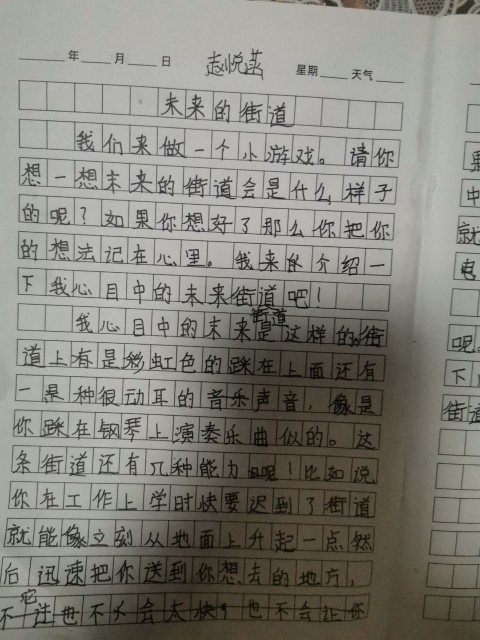 年 月 日 赵悦菡 星期 天气
未来的街道
我们来做一个小游戏。请你
想一想未来的街道会是什么样子
的呢？如果你想好了那么你把你
的想法记在心里。我来介绍一
下我心目中的未来街道吧！
我心目中的未来街道是这样的。街
道上有是彩虹色的踩在上面还有
一是种很动耳的音乐声音，像是
你踩在钢琴上演奏乐曲似的。这
条街道还有几种能力呢！比如说
你在工作上学时快要迟到了街道
就能像立刻从地面上升起一点然
后迅速把你送到你想去的地方，
不它也不会太快，也不会让你
果
中
就
电
呢。
下
街道